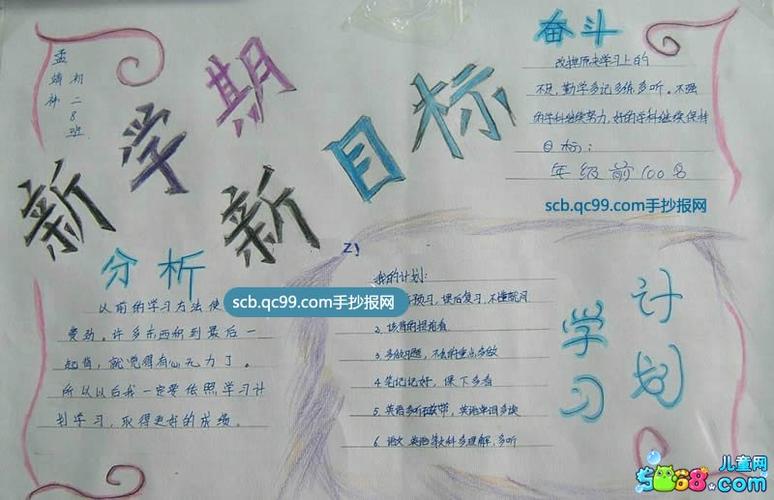 孟
初二8班
新学期
新目标
奋斗
改掉原来学习上的
不足,勤学多记多练多听。不强
的学科继续努力,好的学科继续保持
目标:
年级前100名
scb.qc99.com手抄报网
分析
以前的学习方法使
scb.qc99.com手抄报网
费劲。许多东西积到最后一
起背,就觉得有心无力了。
所以以后我一定要依照学习计
划学习,取得更好的成绩。
学习
计划
我的计划:
预习,课后复习,不懂就问
2、该背的提前看
3、多做习题,不会的重点多做
4、笔记记好,课下多看
5、英语多听磁带,英语单词多读
6、语文 英语等文科多理解,多听
儿童网
5068.com